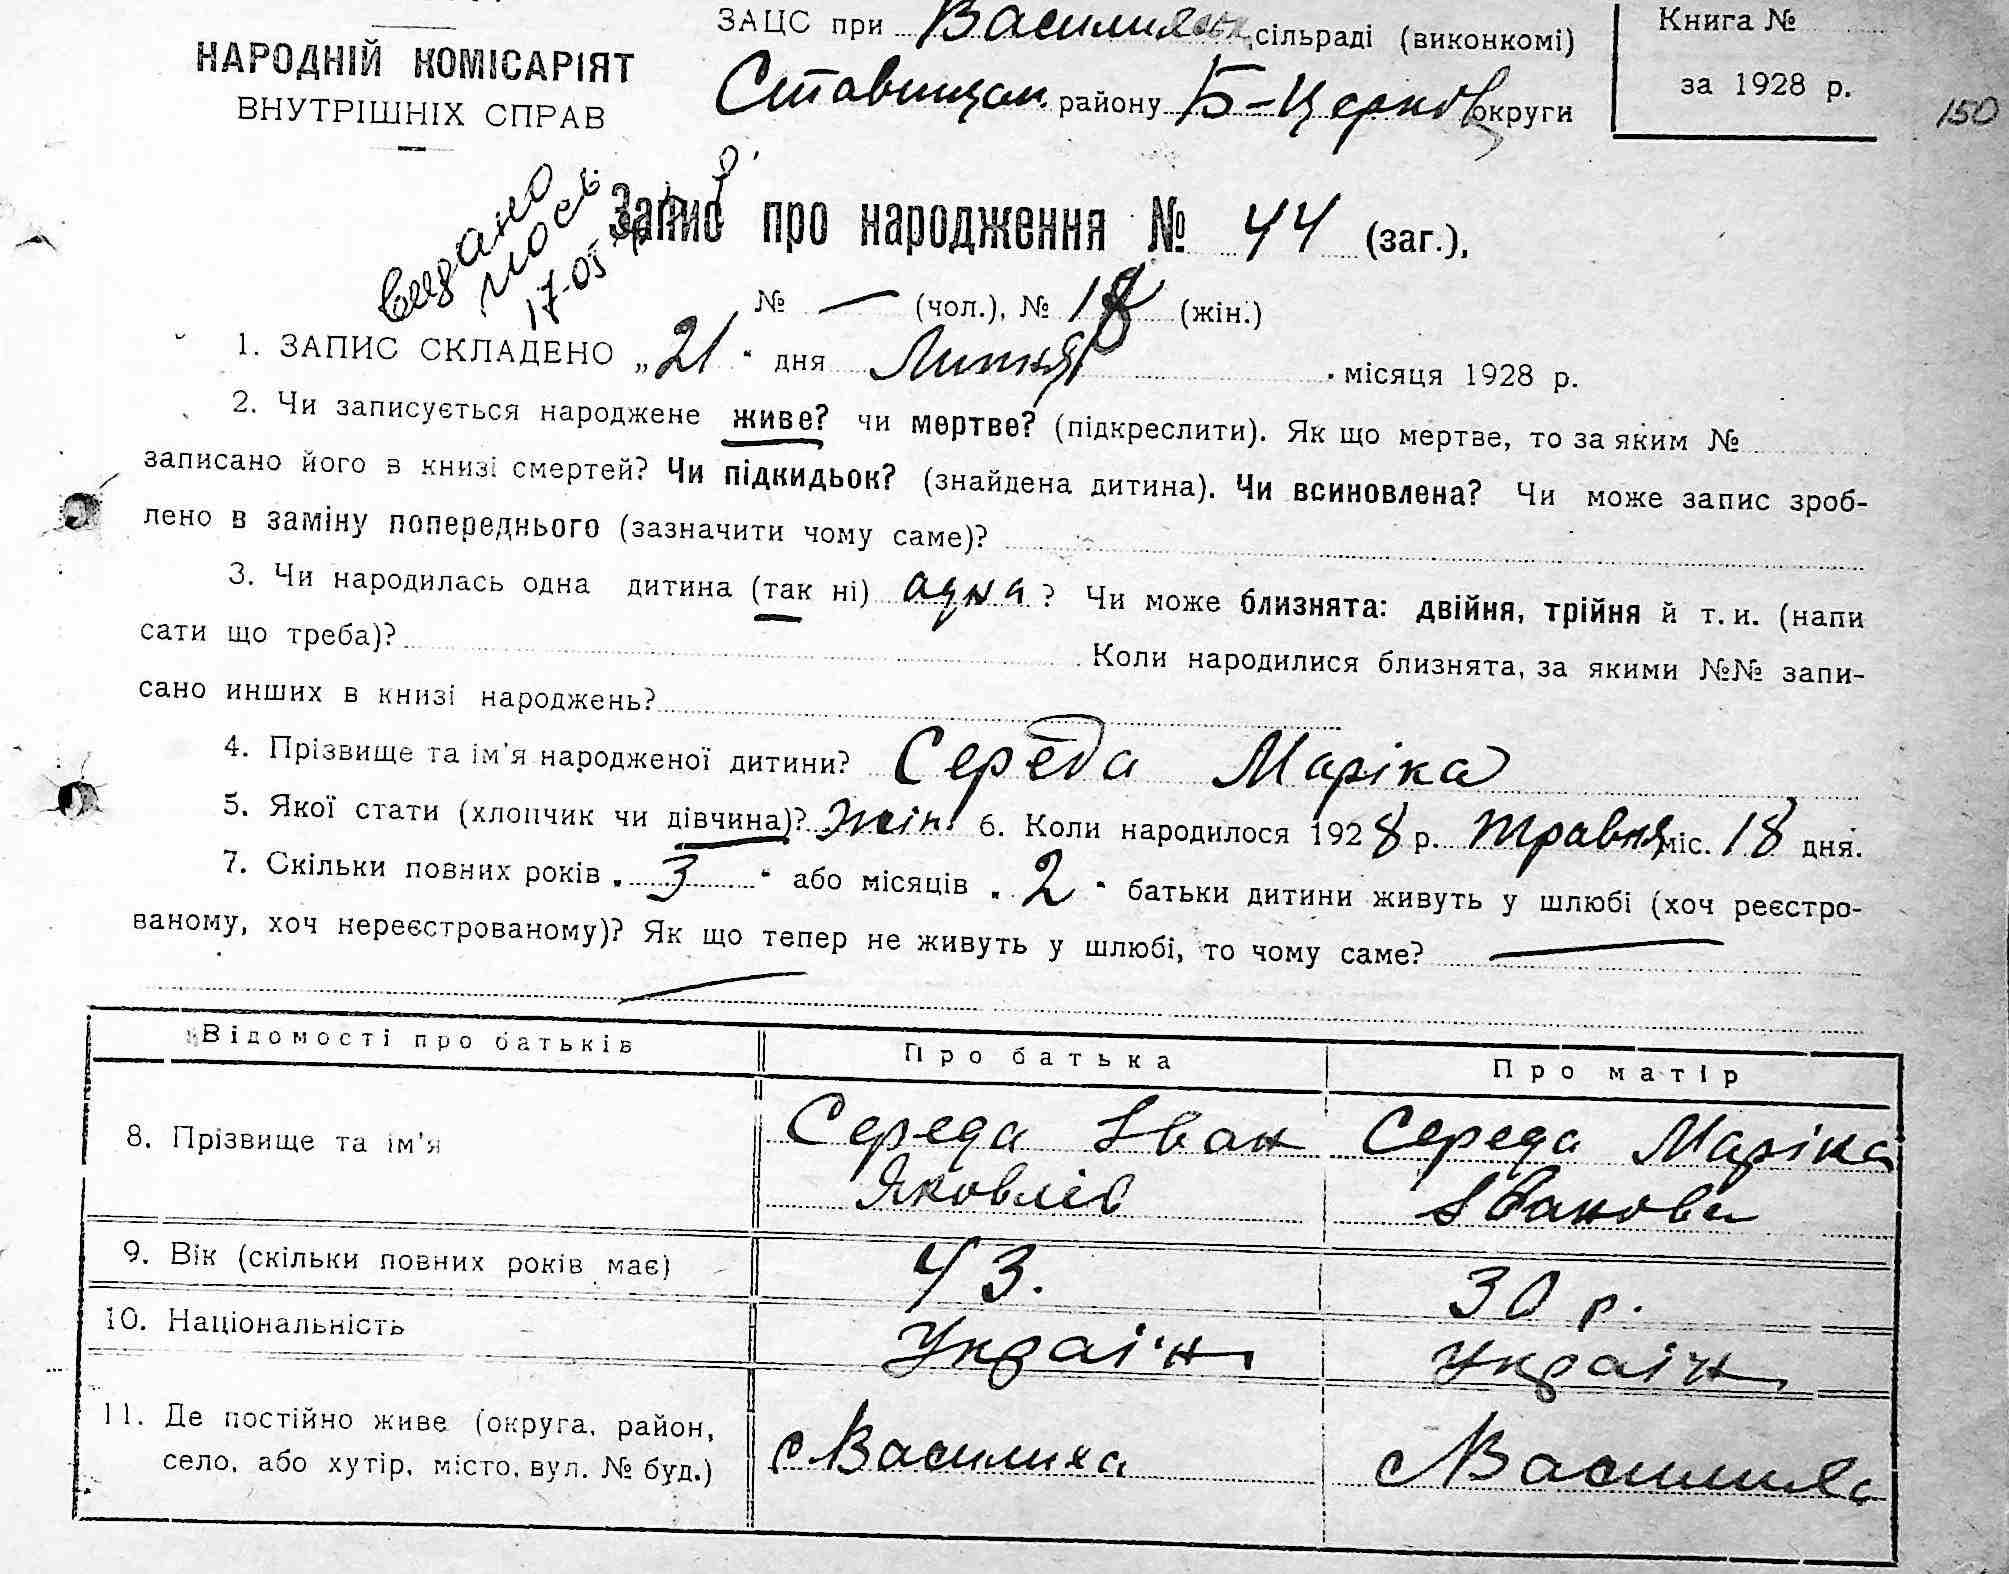 НАРОДНІЙ КОМІСАРІЯТ
ВНУТРІШНІХ СПРАВ
ЗАЦС при сільраді (виконкомі)
району Б-Церков округи
Книга №
за 1928 р.
150
видано
17-05
Запис про народження № 44 (заг.),
№ — (чол.), № 18 (жін.)
1. ЗАПИС СКЛАДЕНО „21“ дня Липня місяця 1928 р.
2. Чи записується народжене живе? чи мертве? (підкреслити). Як що мертве, то за яким №
записано його в книзі смертей? Чи підкидьок? (знайдена дитина). Чи всиновлена? Чи може запис зроб-
лено в заміну попереднього (зазначити чому саме)?
3. Чи народилась одна дитина (так ні) адна? Чи може близнята: двійня, трійня й т. и. (напи
сати що треба)? Коли народилися близнята, за якими №№ запи-
сано инших в книзі народжень?
4. Прізвище та ім'я народженої дитини? Середа Маріка
5. Якої стати (хлопчик чи дівчина)? жін. 6. Коли народилося 1928 р. травня міс. 18 дня.
7. Скільки повних років „3“ або місяців „2“ батьки дитини живуть у шлюбі (хоч реєстро-
ваному, хоч нереєстрованому)? Як що тепер не живуть у шлюбі, то чому саме? —
—
Відомості про батьків Про батька Про матір
8. Прізвище та ім'я Середа Іван Середа Маріка
Яковлів Іванова
9. Вік (скільки повних років має) 43. 30 р.
10. Національність Украін Украін
11. Де постійно живе (округа, район,
село, або хутір, місто, вул. № буд.) с Василиха с Василиха